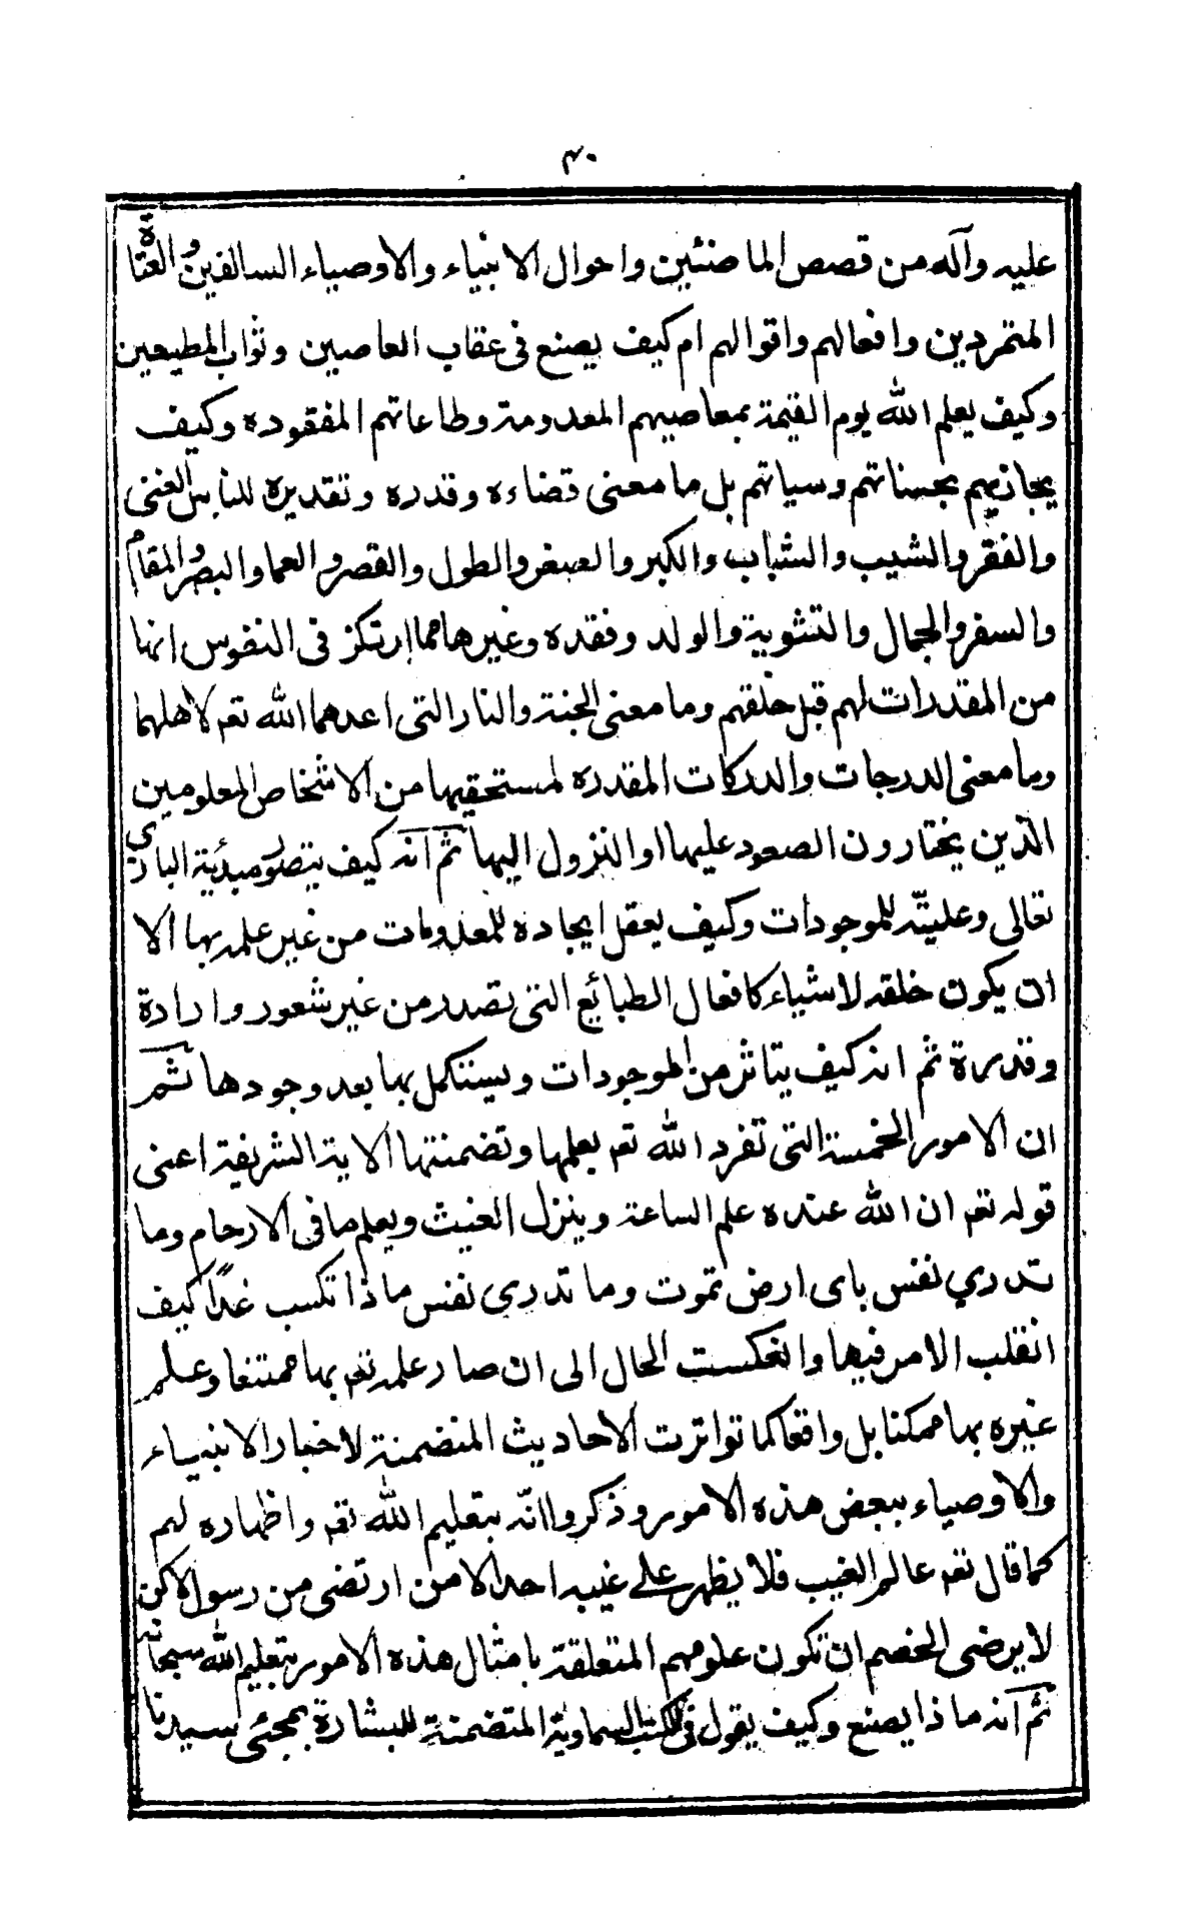 ٣٠
عليه وآله من قصص الماضئين واحوال الانبياء والاوصياء السالفين والعتاة
المتمردين وافعالهم واقوالهم ام كيف يصنع فى عقاب العاصين وثواب المطيعين
وكيف يعلم الله يوم القيمة بمعاصيهم المعدومة وطاعاتهم المفقوده وكيف
يجازيهم بحسناتهم وسياتهم بل ما معنى قضاءه وقدره وتقديره للناس الغنى
والفقر والشيب والشباب والكبر والصغر والطول والقصر والعما والبصر والمقام
والسفر والجمال والتشوية والولد وفقده وغيرها مما ارتكز فى النفوس انها
من المقدرات لهم قبل خلقهم وما معنى الجنة والنار التى اعدهما الله تعم لاهلهما
وما معنى الدرجات والدركات المقدره لمستحقيها من الاشخاص المعلومين
الذين يختارون الصعود عليها او النزول اليها ثم انه كيف يتصور مبدئية البارى
تعالى وعليته للموجودات وكيف يعقل ايجاده للمعدومات من غير علمه بها الا
ان يكون خلقه لاشياء كافعال الطبائع التى تصدر من غير شعور وارادة
وقدرة ثم انه كيف يتاثر من الموجودات ويستكمل بها بعد وجودها ثم
ان الامور الخمسة التى تفرد الله تعم بعلمها وتضمنتها الاية الشريفة اعنى
قوله تعم ان الله عنده علم الساعة وينزل الغيث ويعلم ما فى الارحام وما
تدري نفس باى ارض تموت وما تدرى نفس ما ذا تكسب غدًا كيف
انقلب الامر فيها وانعكست الحال الى ان صار علمه تعم بها ممتنعا وعلم
غيره بها ممكنا بل واقعا كما تواترت الاحاديث المتضمنة لاخبار الانبياء
والاوصياء ببعض هذه الامور وذكروا انّه بتعليم الله تعم واظهاره لهم
كما قال تعم عالم الغيب فلا يظهر على غيبه احدا الا من ارتضى من رسول لاكن
لا يرضى الخصم ان تكون علومهم المتعلقة بامثال هذه الامور بتعليم الله سبحانه
ثم انه ما ذا يصنع وكيف يقول فى الكتب السماوية المتضمنة للبشارة بمجئى سيدنا